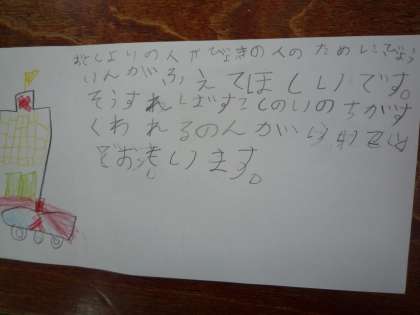 おとしよりの人やびょうきの人のためにびょう
いんがふえてほしいです。
そうすればすこしのいのちがす
くわれるの
とおもいます。